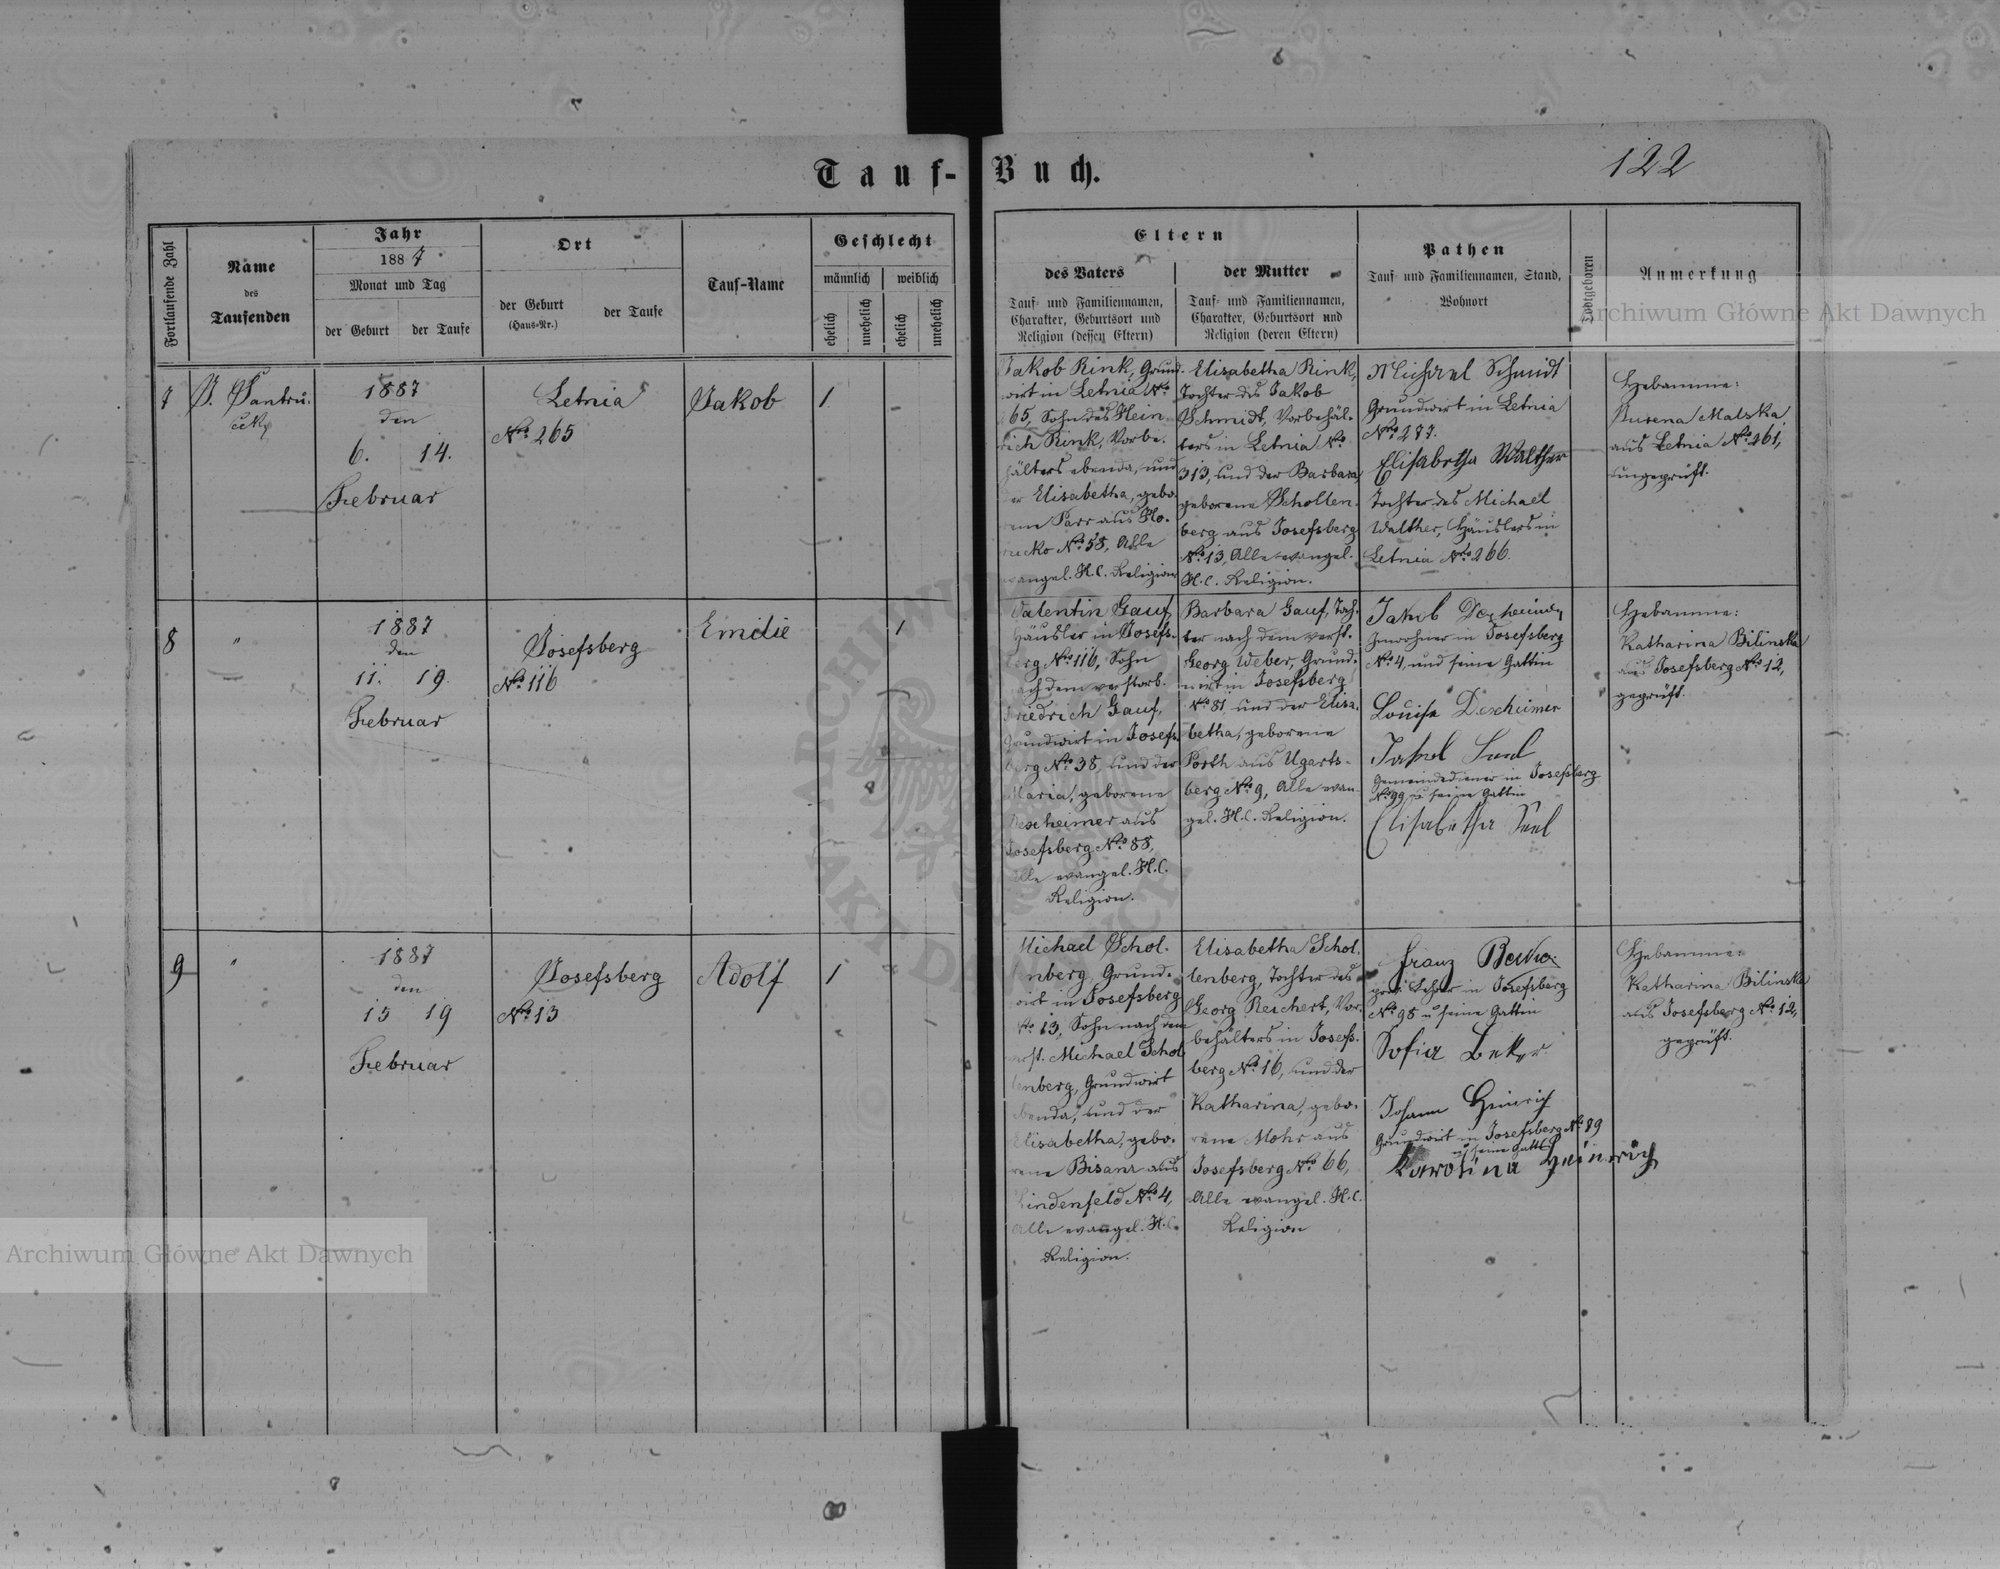 Tauf-Buch.
122
Fortlaufende Zahl
Name
des
Taufenden
Jahr
1887
Monat und Tag
der Geburt
der Taufe
Ort
der Geburt
(Haus-Nr.)
der Taufe
Tauf-Name
Geschlecht
männlich
weiblich
ehelich
unehelich
ehelich
unehelich
Eltern
des Vaters
Tauf- und Familiennamen,
Charakter, Geburtsort und
Religion (dessen Eltern)
der Mutter
Tauf- und Familiennamen,
Charakter, Geburtsort und
Religion (deren Eltern)
Pathen
Tauf- und Familiennamen, Stand,
Wohnort
Todtgeboren
Anmerkung
7
1887
den
6. 14.
Februar
Letnia
No 265
Jakob
1
Jakob Rink, Grund-
wirt in Letnia No
265, Sohn des Hein-
rich Rink, Vorbe-
hälters ebenda, und
der Elisabetha, gebo-
rene Parr aus
No 58, Alle
evangel. H.C. Religion
Elisabetha Rink,
Tochter des Jakob
Schmidt, Vorbehäl-
ters in Letnia No
313, und der Barbara
geborene Schollen-
berg aus Josefsberg
No 13, Alle evangel.
H.C. Religion.
Michael Schmidt
Grundwirt in Letnia
No 277.
Elisabetha Walther
Tochter des Michael
Walther, Häuslers in
Letnia No 266.
Hebamme:
Malska
aus Letnia No 261,
ungeprüft.
8
"
1887
den
11. 19.
Februar
Josefsberg
No 116
Emilie
1
Valentin Gauf,
Häusler in Josefs-
berg No 116, Sohn
nach dem verstorb.
Friedrich Gauf,
Grundwirt in Josefs-
berg No 38, und der
Maria, geborene
Dexheimer aus
Josefsberg No 88,
Alle evangel. H.C.
Religion.
Barbara Gauf, Toch-
ter nach dem verst.
Georg Weber, Grund-
wirt in Josefsberg
No 81, und der Elisa-
betha, geborene
Porth aus Ugarts-
berg No 9, Alle evan-
gel. H.C. Religion.
Jakob Dexheimer
Inwohner in Josefsberg
No 4, und seine Gattin
Louise Dexheimer
Jakob Seel
Gemeindediener in Josefsberg
No 99 u seine Gattin
Elisabetha Seel
Hebamme:
Katharina Bilinska
aus Josefsberg No 12,
geprüft.
9
"
1887
den
15 19
Februar
Josefsberg
No 13
Adolf
1
Michael Schol-
lenberg, Grund-
wirt in Josefsberg
No 13, Sohn nach dem
verst. Michael Schol-
lenberg, Grundwirt
ebenda, und der
Elisabetha, gebo-
rene Bisanz aus
Lindenfeld No 4,
Alle evangel. H.C.
Religion.
Elisabetha Schol-
lenberg, Tochter des
Georg Reichert, Vor-
behälters in Josefs-
berg No 16, und der
Katharina, gebo-
rene Mohr aus
Josefsberg No 66,
Alle evangel. H.C.
Religion
Franz
Lehrer in Josefsberg
No 98 u seine Gattin
Sofia Beker
Johann Heinrich
Grundwirt in Josefsberg No 89
u seine Gattin
Karolina Heinrich
Hebamme:
Katharina Bilinska
aus Josefsberg No 12,
geprüft.
Archiwum Główne Akt Dawnych
Archiwum Główne Akt Dawnych